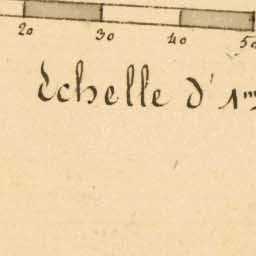 20 30 40 50
Echelle d' 1m